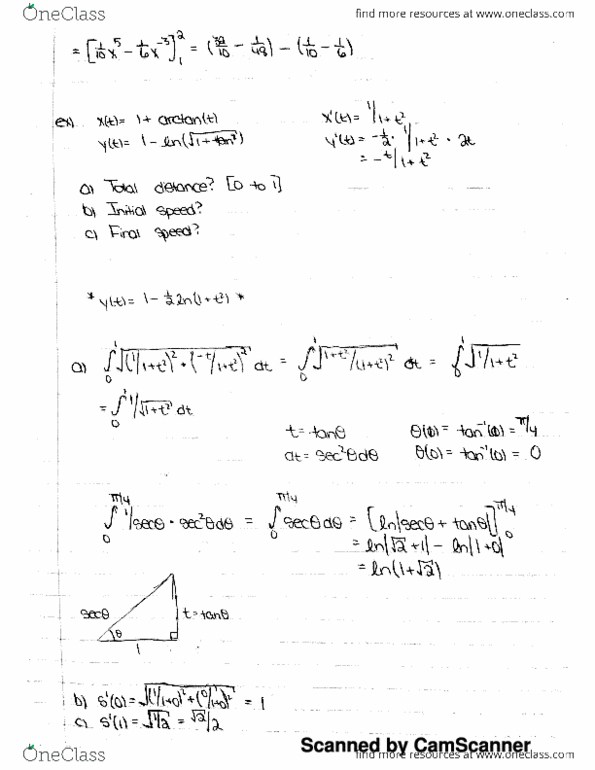 OneClass
find more resources at www.oneclass.com
= [1/10 x⁵ - 1/6 x⁻³]₁² = (32/10 - 1/48) - (1/10 - 1/6)
ex) x(t) = 1 + arctan(t) x'(t) = 1/1+t²
y(t) = 1 - ln(√1+tan²) y'(t) = -1/2 · 1/1+t² · 2t
= -t/1+t²
a) Total distance? [0 to 1]
b) Initial speed?
c) Final speed?
* y(t) = 1 - 1/2 ln(1+t²) *
a) ∫₀¹ √(1/1+t²)² + (-t/1+t²)² dt = ∫₀¹ √1+t²/(1+t²)² dt = ∫₀¹ √1/1+t²
= ∫₀¹ 1/√1+t² dt
t = tanθ θ(1) = tan⁻¹(1) = π/4
dt = sec²θdθ θ(0) = tan⁻¹(0) = 0
∫₀^π/4 1/secθ · sec²θdθ = ∫₀^π/4 secθdθ = [ln|secθ + tanθ|]₀^π/4
= ln|√2 + 1| - ln|1+0|
= ln(1+√2)
secθ t = tanθ
θ
1
b) s'(0) = √(1/1+0)² + (0/1+0)² = 1
c) s'(1) = √1/2 = √2/2
Scanned by CamScanner
OneClass
find more resources at www.oneclass.com